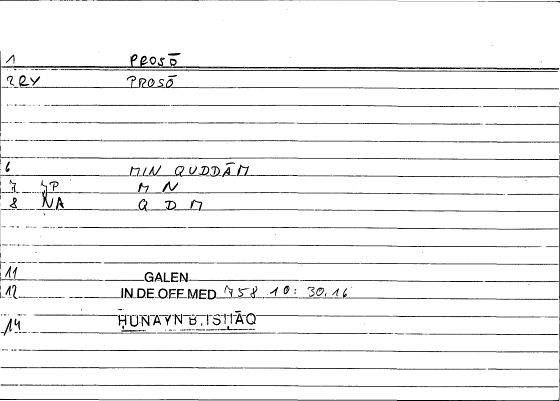 1 PROSŌ
2RY PROSŌ
6 MIN QUDDĀM
7 JP M N
8 NA Q D M
11 GALEN
12 IN DE OFF MED 758 10: 30.16
14 ḤUNAYN B. ISḤĀQ